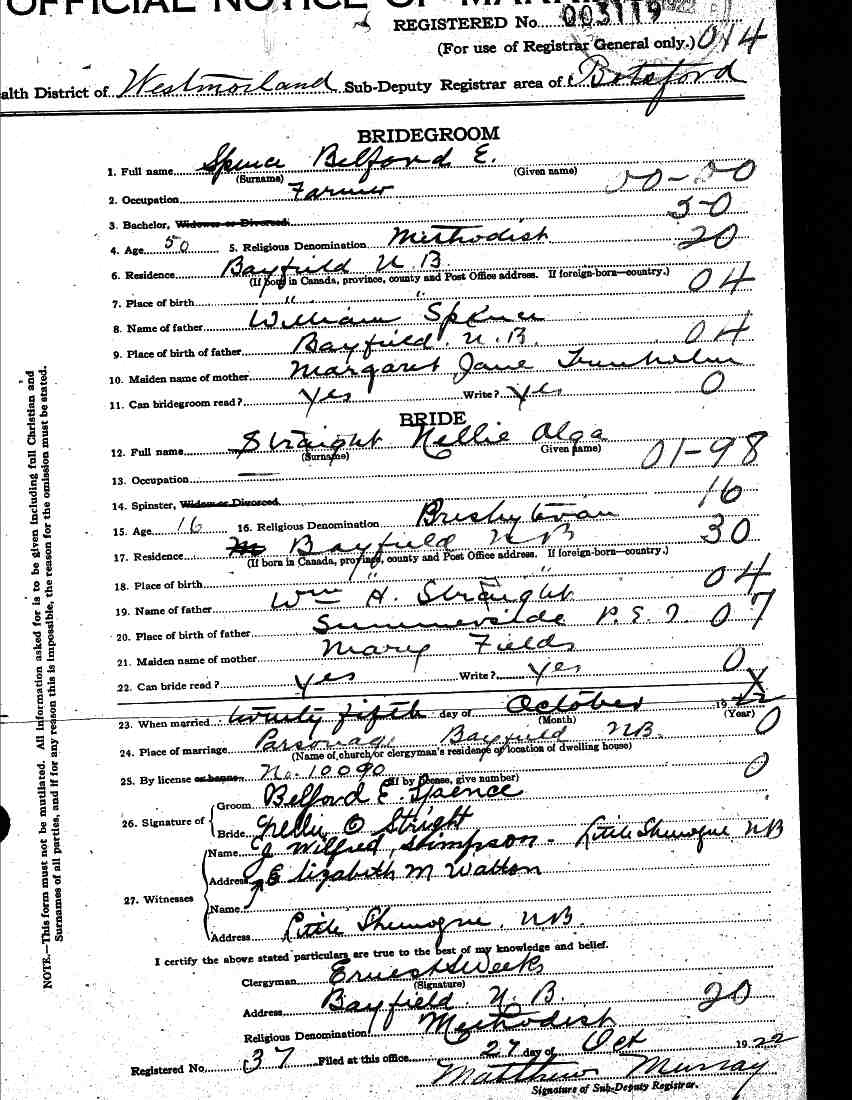 OFFICIAL NOTICE OF
REGISTERED No. 003119
(For use of Registrar General only.) 014
alth District of Westmorland Sub-Deputy Registrar area of Botsford
BRIDEGROOM
1. Full name Spence Belford E.
(Surname) (Given name)
2. Occupation Farmer
3. Bachelor, Widower or Divorced 50
4. Age 50 5. Religious Denomination Methodist 20
6. Residence Bayfield N.B.
(If born in Canada, province, county and Post Office address. If foreign-born—country.) 04
7. Place of birth " "
8. Name of father William Spence
9. Place of birth of father Bayfield. N.B. 04
10. Maiden name of mother Margaret Jane Trenholm
11. Can bridegroom read? Yes Write? Yes 0
BRIDE
12. Full name Straight Nellie Olga
(Surname) Given name) 01-98
13. Occupation —
14. Spinster, Widow or Divorced 16
15. Age 16 16. Religious Denomination Presbyterian
17. Residence Bayfield NB 30
(If born in Canada, province, county and Post Office address. If foreign-born—country.)
18. Place of birth " " 04
19. Name of father Wm H. Straight
20. Place of birth of father Summerside P.E.I. 07
21. Maiden name of mother Mary Fields
22. Can bride read? Yes Write? Yes 0
23. When married twenty fifth day of October 1922
(Month) (Year)
24. Place of marriage Parsonage Bayfield NB. 0
(Name of church/or clergyman's residence or location of dwelling house)
25. By license or banns No. 10090 0
(If by license, give number)
26. Signature of
Groom Belford E. Spence
Bride Nellie O Stright
27. Witnesses
Name J Wilfred Simpson - Little Shemogue NB
Address Elizabeth M Walton
Name
Address Little Shemogue, NB.
I certify the above stated particulars are true to the best of my knowledge and belief.
Clergyman Ernest S Weeks
(Signature)
Address Bayfield N.B. 20
Religious Denomination Methodist
Registered No. 37 Filed at this office 27 day of Oct 1922
Matthew Murray
Signature of Sub-Deputy Registrar.
NOTE.—This form must not be mutilated. All information asked for is to be given including full Christian and
Surnames of all parties, and if for any reason this is impossible, the reason for the omission must be stated.